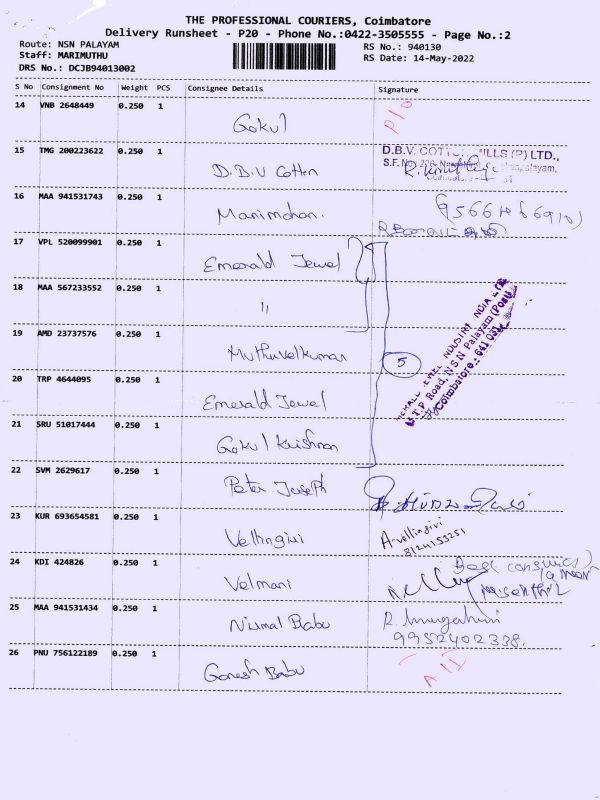 THE PROFESSIONAL COURIERS, Coimbatore
Delivery Runsheet - P20 - Phone No.:0422-3505555 - Page No.:2
Route: NSN PALAYAM
Staff: MARIMUTHU
DRS No.: DCJB94013002
RS No.: 940130
RS Date: 14-May-2022
S No Consignment No Weight PCS Consignee Details Signature
14 VNB 2648449 0.250 1 Gokul
15 TMG 200223622 0.250 1 D.B.V Cotten
D.B.V. COTT MILLS (P) LTD.,
16 MAA 941531743 0.250 1 Manimohan.
17 VPL 520099901 0.250 1 Emerald Jewel
18 MAA 567233552 0.250 1 "
19 AMD 23737576 0.250 1 Muthuvelkumar
5
20 TRP 4644095 0.250 1 Emerald Jewel
M.T.P Road, N.S.N Palayam (Post)
Coimbatore - 641 031
21 SRU 51017444 0.250 1 Gokul Krishnan
22 SVM 2629617 0.250 1 Peter Joseph
23 KUR 693654581 0.250 1 Vellingiri A. vellingiri
8124153251
24 KDI 424826 0.250 1 Velmani
25 MAA 941531434 0.250 1 Nirmal Babu
9952402338.
26 PNU 756122189 0.250 1 Ganesh Babu